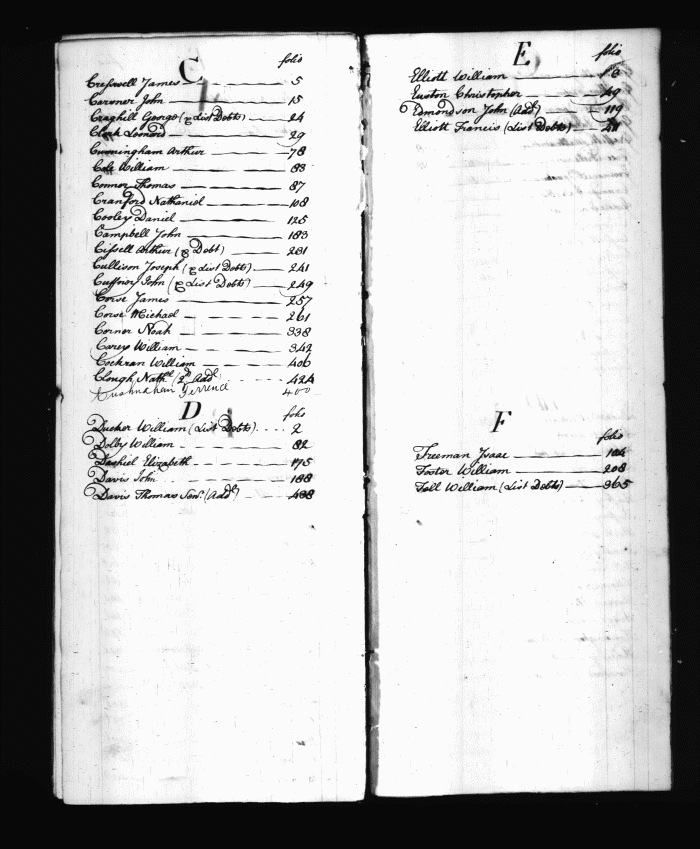 C
folio
Creswell James 5
Cardner John 15
Craghill George (& List Debts) 24
Clark Leonard 29
Cunningham Arthur 78
Cole William 83
Connor Thomas 87
Cranford Nathaniel 108
Cooley Daniel 125
Campbell John 183
Cissell Arthur (& Debt) 231
Cullison Joseph (& List Debts) 241
John (& List Debts) 249
Corse James 257
Corse Michael 261
Corner Noah 338
Carey William 342
Cockran William 406
Clough Nathl. (2d. Addl.) 424
400
D
folio
Ducker William (List Debts) 2
Dolby William 82
Dashiel Elizabeth 175
Davis John 188
Davis Thomas Senr. (Addl.) 488
E
folio
Elliott William
Euston Christopher 49
Edmondson John (Addl.) 119
Elliott Francis (List Debts)
F
folio
Freeman Isaac 104
Foster William 208
Fell William (List Debts) 365